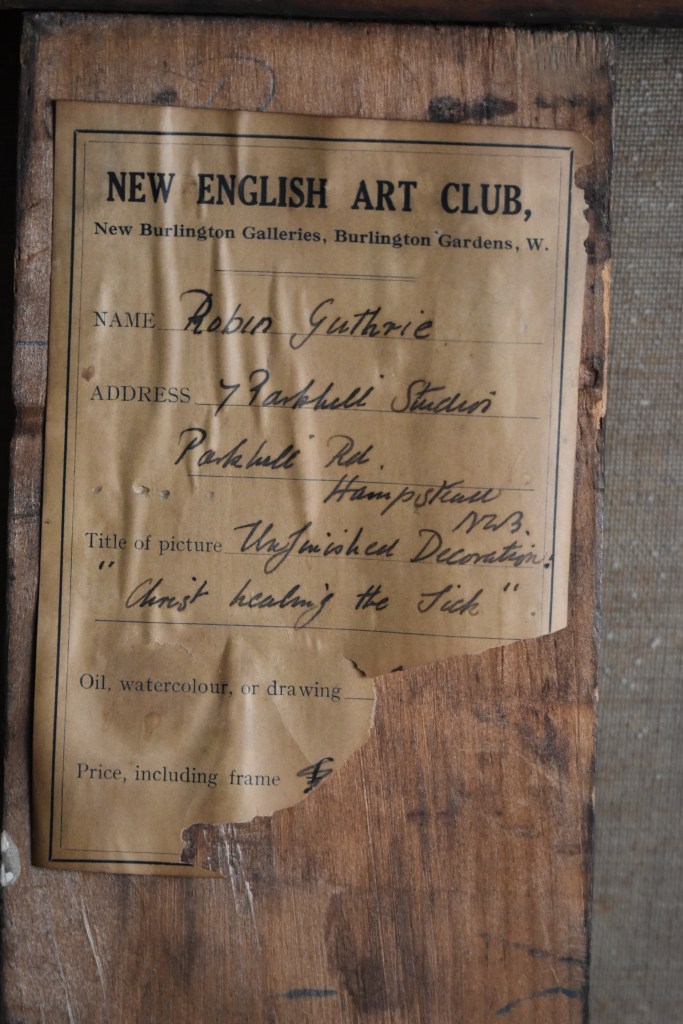 NEW ENGLISH ART CLUB,
New Burlington Galleries, Burlington Gardens, W.
NAME Robin Guthrie
ADDRESS 7 Parkhill Studios
Parkhill Rd.
Hampstead
NW3.
Title of picture Unfinished Decoration:
"Christ healing the Sick"
Oil, watercolour, or drawing
Price, including frame